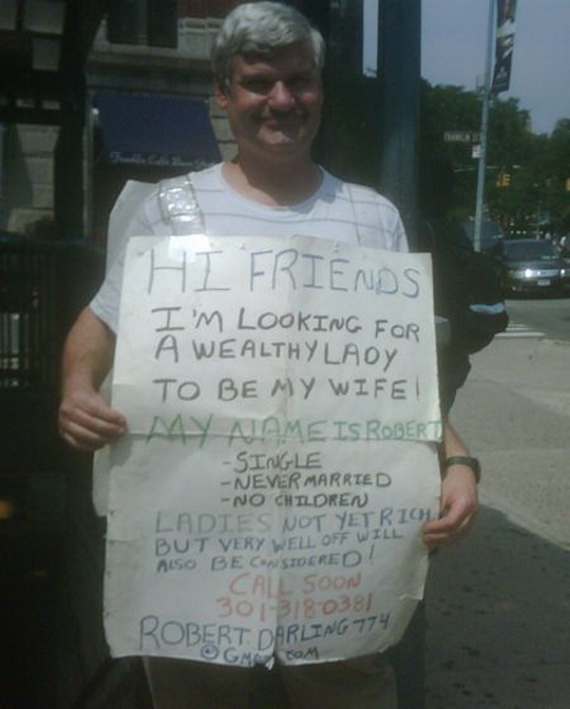 HI FRIENDS
I'M LOOKING FOR
A WEALTHY LADY
TO BE MY WIFE!
MY NAME IS ROBERT
-SINGLE
-NEVER MARRIED
-NO CHILDREN
LADIES NOT YET RICH
BUT VERY WELL OFF WILL
ALSO BE CONSIDERED!
CALL SOON
301-318-0381
ROBERT.DARLING774
@GMAIL.COM
FRANKLIN ST